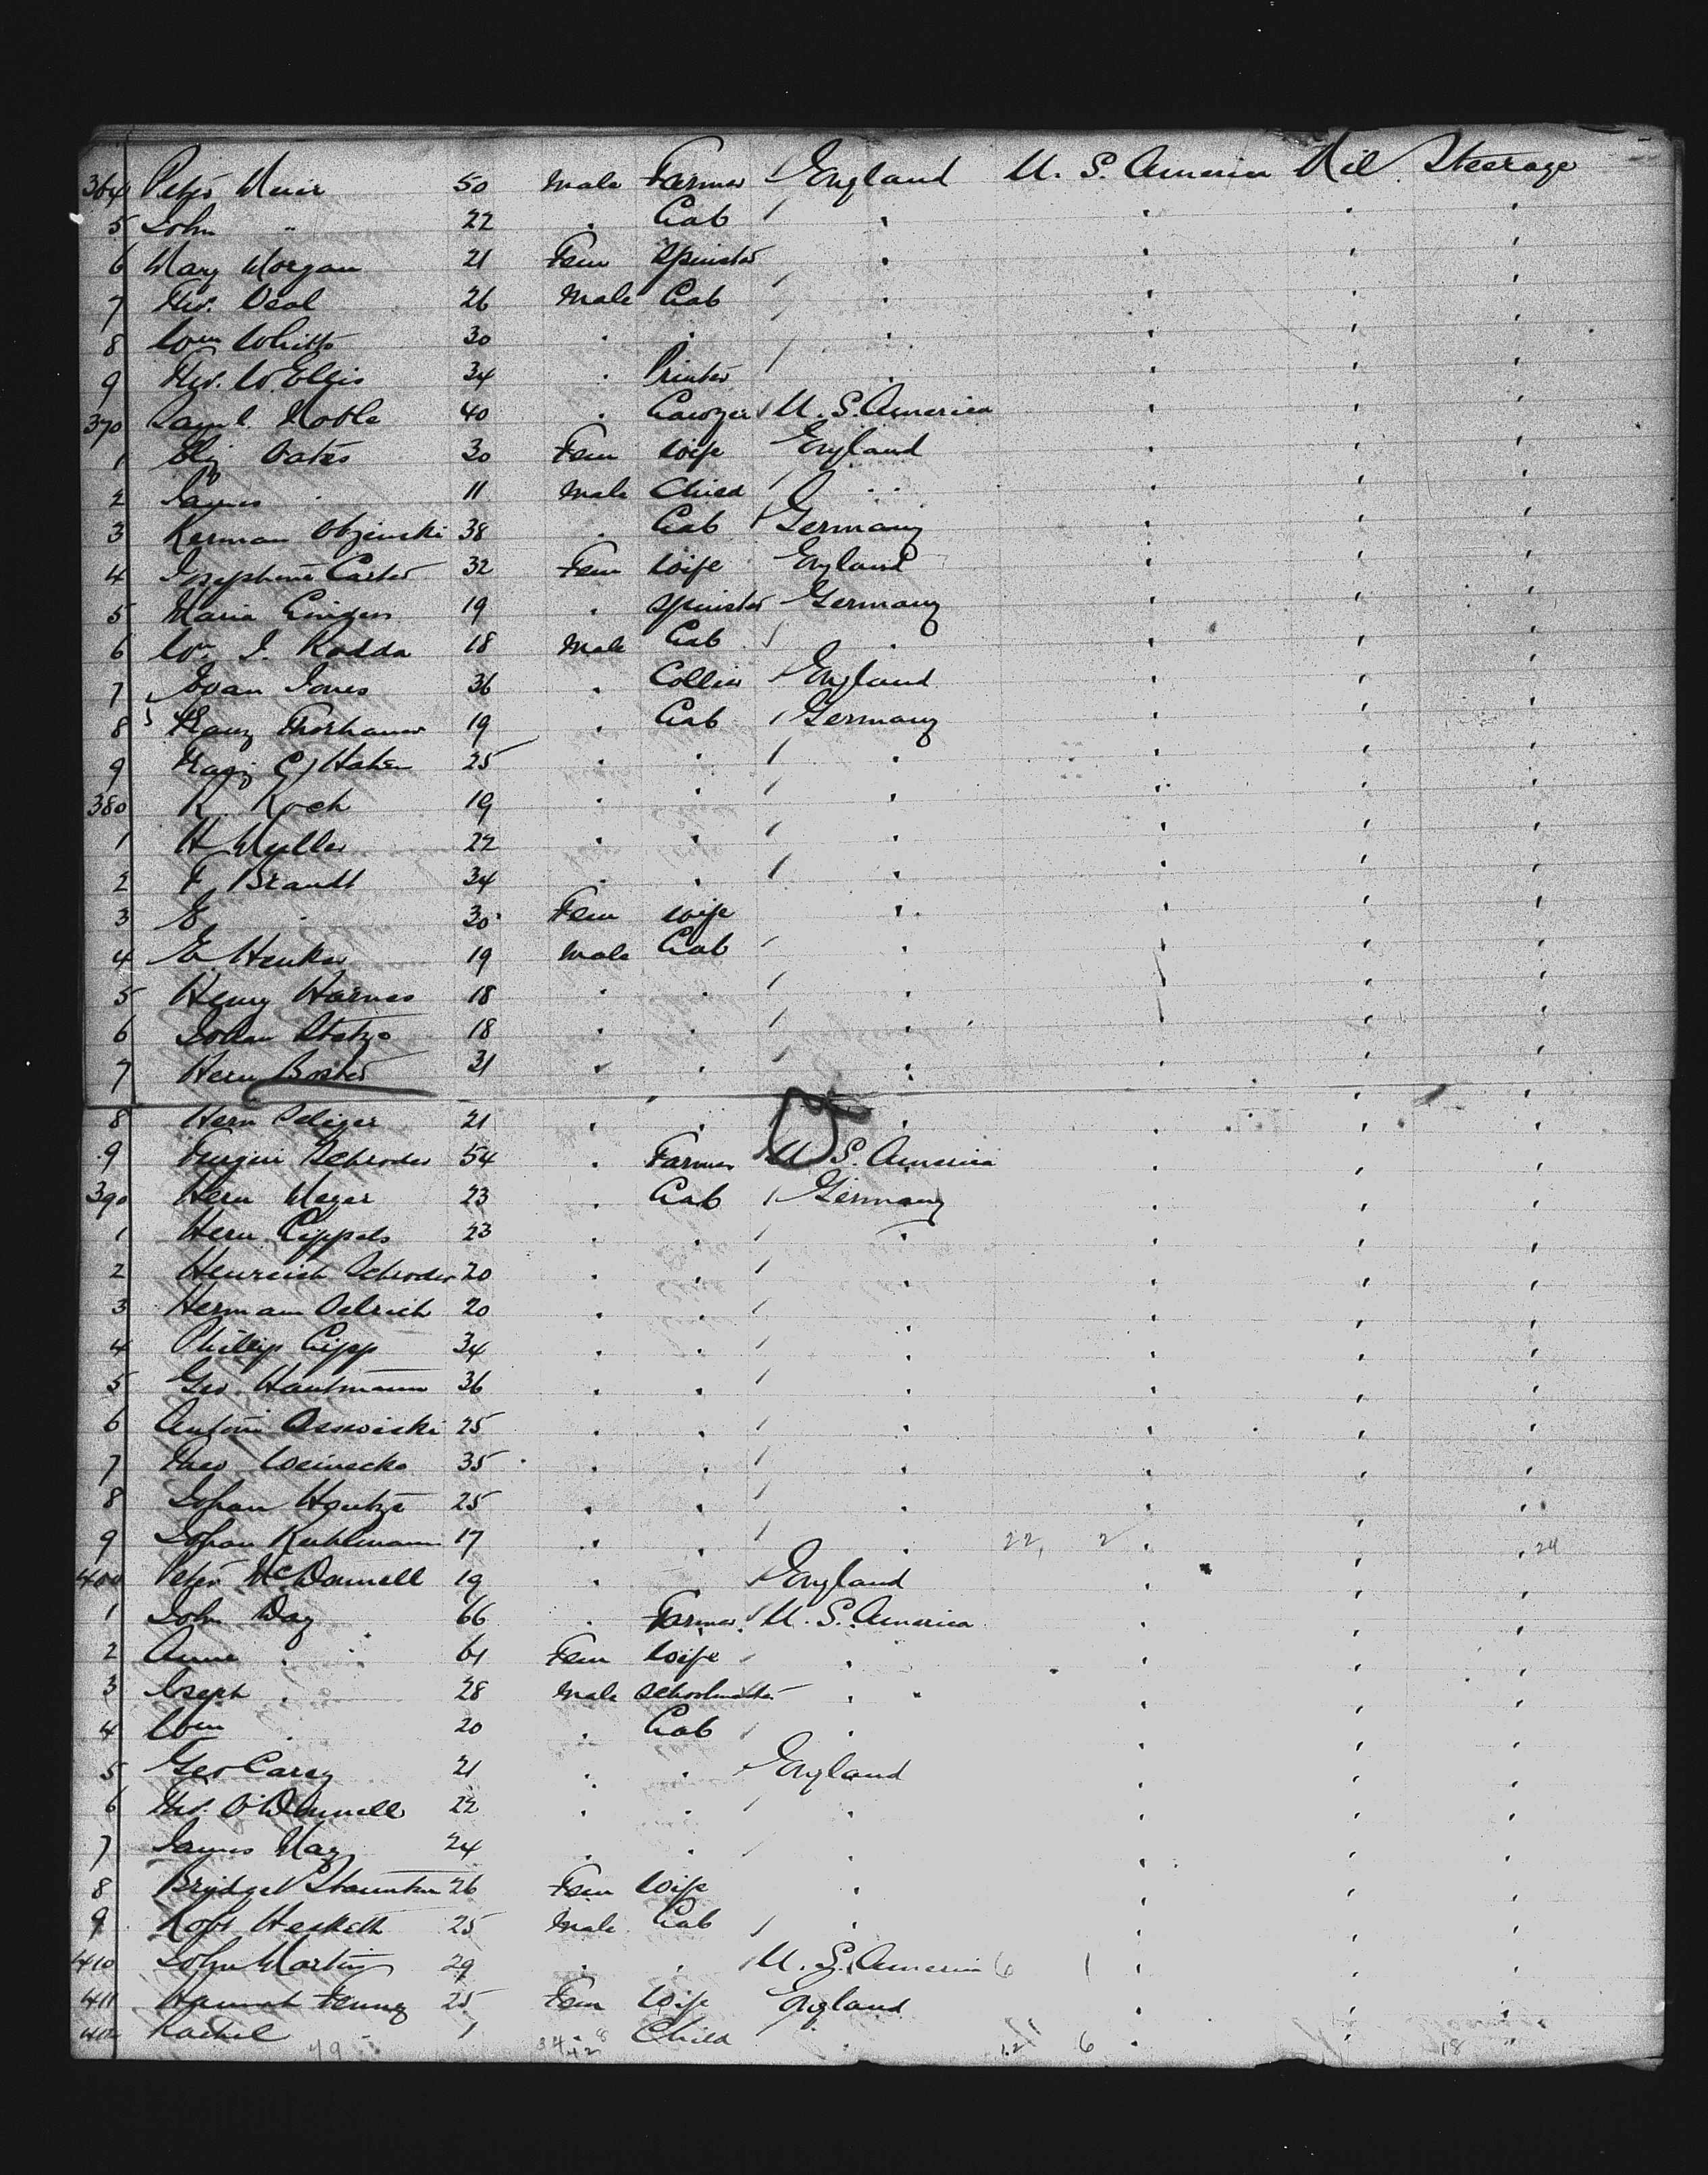 364 Peter Muir 50 Male Farmer / England U. S. America Nil Steerage
5 John " 22 . Lab / . . . .
6 Mary Morgan 21 Fem Spinster . . . .
7 Thos. Deal 26 Male Lab / . . . .
8 Wm White 30 . . / . . . .
9 Thos. W. Ellis 34 . Printer / . . . .
370 Saml. Noble 40 . Lawyer / U. S. America . . .
1 Eliz Oates 30 Fem Wife England . . .
2 James . 11 Male Child / . . . .
3 Kerman 38 . Lab / Germany . . .
4 Josephine Carter 32 Fem Wife England . . .
5 Maria 19 . Spinster Germany . . .
6 Wm J. Rodda 18 Male Lab / . . . .
7 Evan Jones 36 . Collier / England . . .
8 Franz 19 . Lab / Germany . . .
9 25 . . / . . . .
380 K Koch 19 . . / . . . .
1 H Muller 22 . . / . . . .
2 F Brandt 34 . . / . . . .
3 E . 30 Fem Wife . . . .
4 E Henker 19 Male Lab / . . . .
5 Henry Harnes 18 . . / . . . .
6 Johan 18 . . / . . . .
7 Herm 31 . . / . . . .
8 Herm Seliger 21 . . / . . . .
9 Schroder 54 . Farmer U. S. America . . .
390 Herm Meyer 23 . Lab / Germany . . .
1 Herm Lippels 23 . . / . . . .
2 Heinrich Schroder 20 . . / . . . .
3 Hermann Oelrich 20 . . / . . . .
4 Phillip Lipp 34 . . / . . . .
5 Geo. Hautmann 36 . . / . . . .
6 Antoni 25 . . / . . . .
7 Theo Weinecke 35 . . / . . . .
8 Johan Hentze 25 . . / . . . .
9 Johan Kuhlmann 17 . . / . 22, 2 . . . 24
400 Peter McDonnell 19 . / England . . .
1 John Day 66 . Farmer / U. S. America . . .
2 Anne . 61 Fem Wife / . . . .
3 Joseph . 28 Male Schoolmaster . . . .
4 Wm . 20 . Lab / . . . .
5 Geo Carey 21 . . England . . .
6 Thos. O'Donnell 22 . . / . . . .
7 James May 24 . . / . . . .
8 Bridget Staunton 26 Fem Wife . . . .
9 Robt Hesketh 25 Male Lab / . . . .
410 John Martin 29 . . / U. S. America 6 1 . . .
411 Hannah Fenney 25 Fem Wife England . . .
412 Rachel " 1 . Child . 12 6 . . 18 "